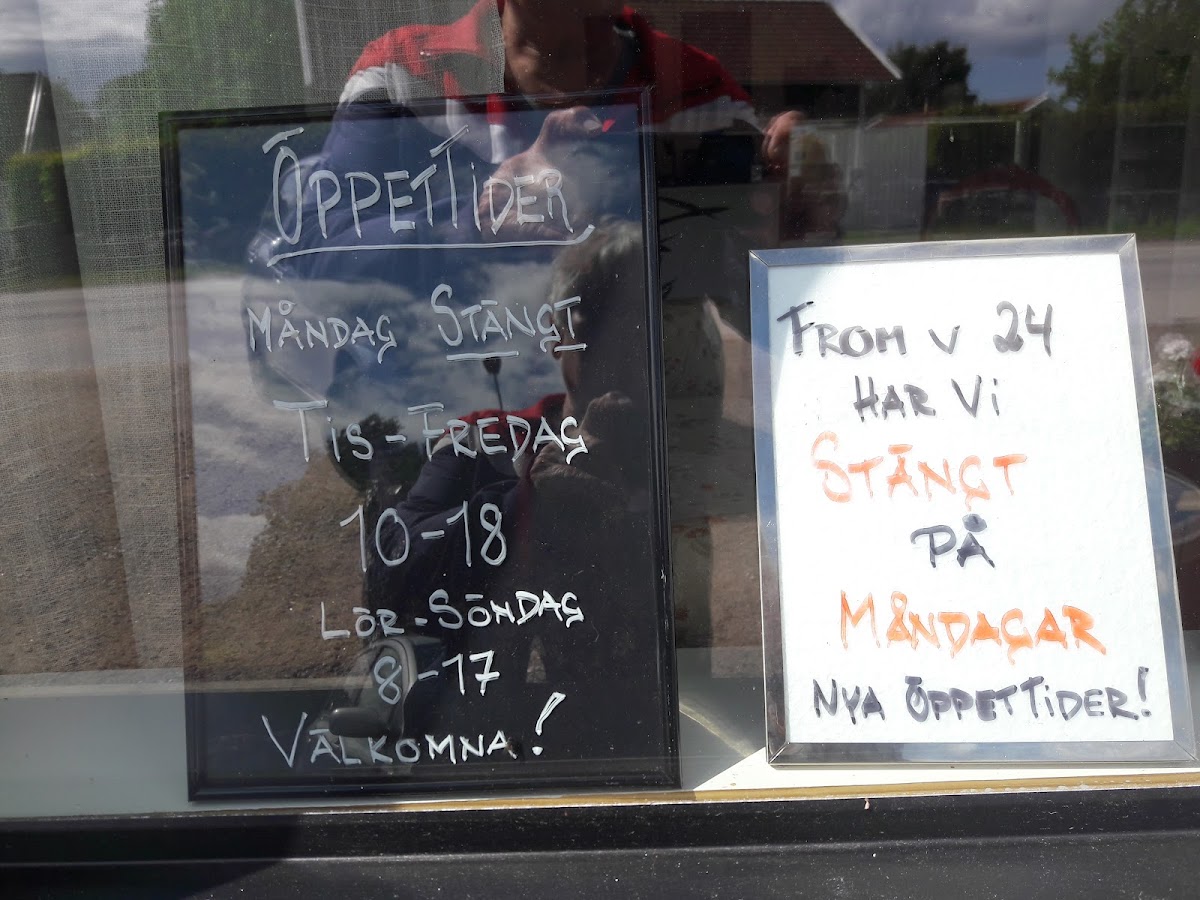 ÖPPETTIDER
MÅNDAG STÄNGT
TIS-FREDAG
10-18
LÖR-SÖNDAG
8-17
VÄLKOMNA!
FROM V 24
HAR Vi
STÄNGT
PÅ
MÅNDAGAR
NYA ÖPPETTIDER!